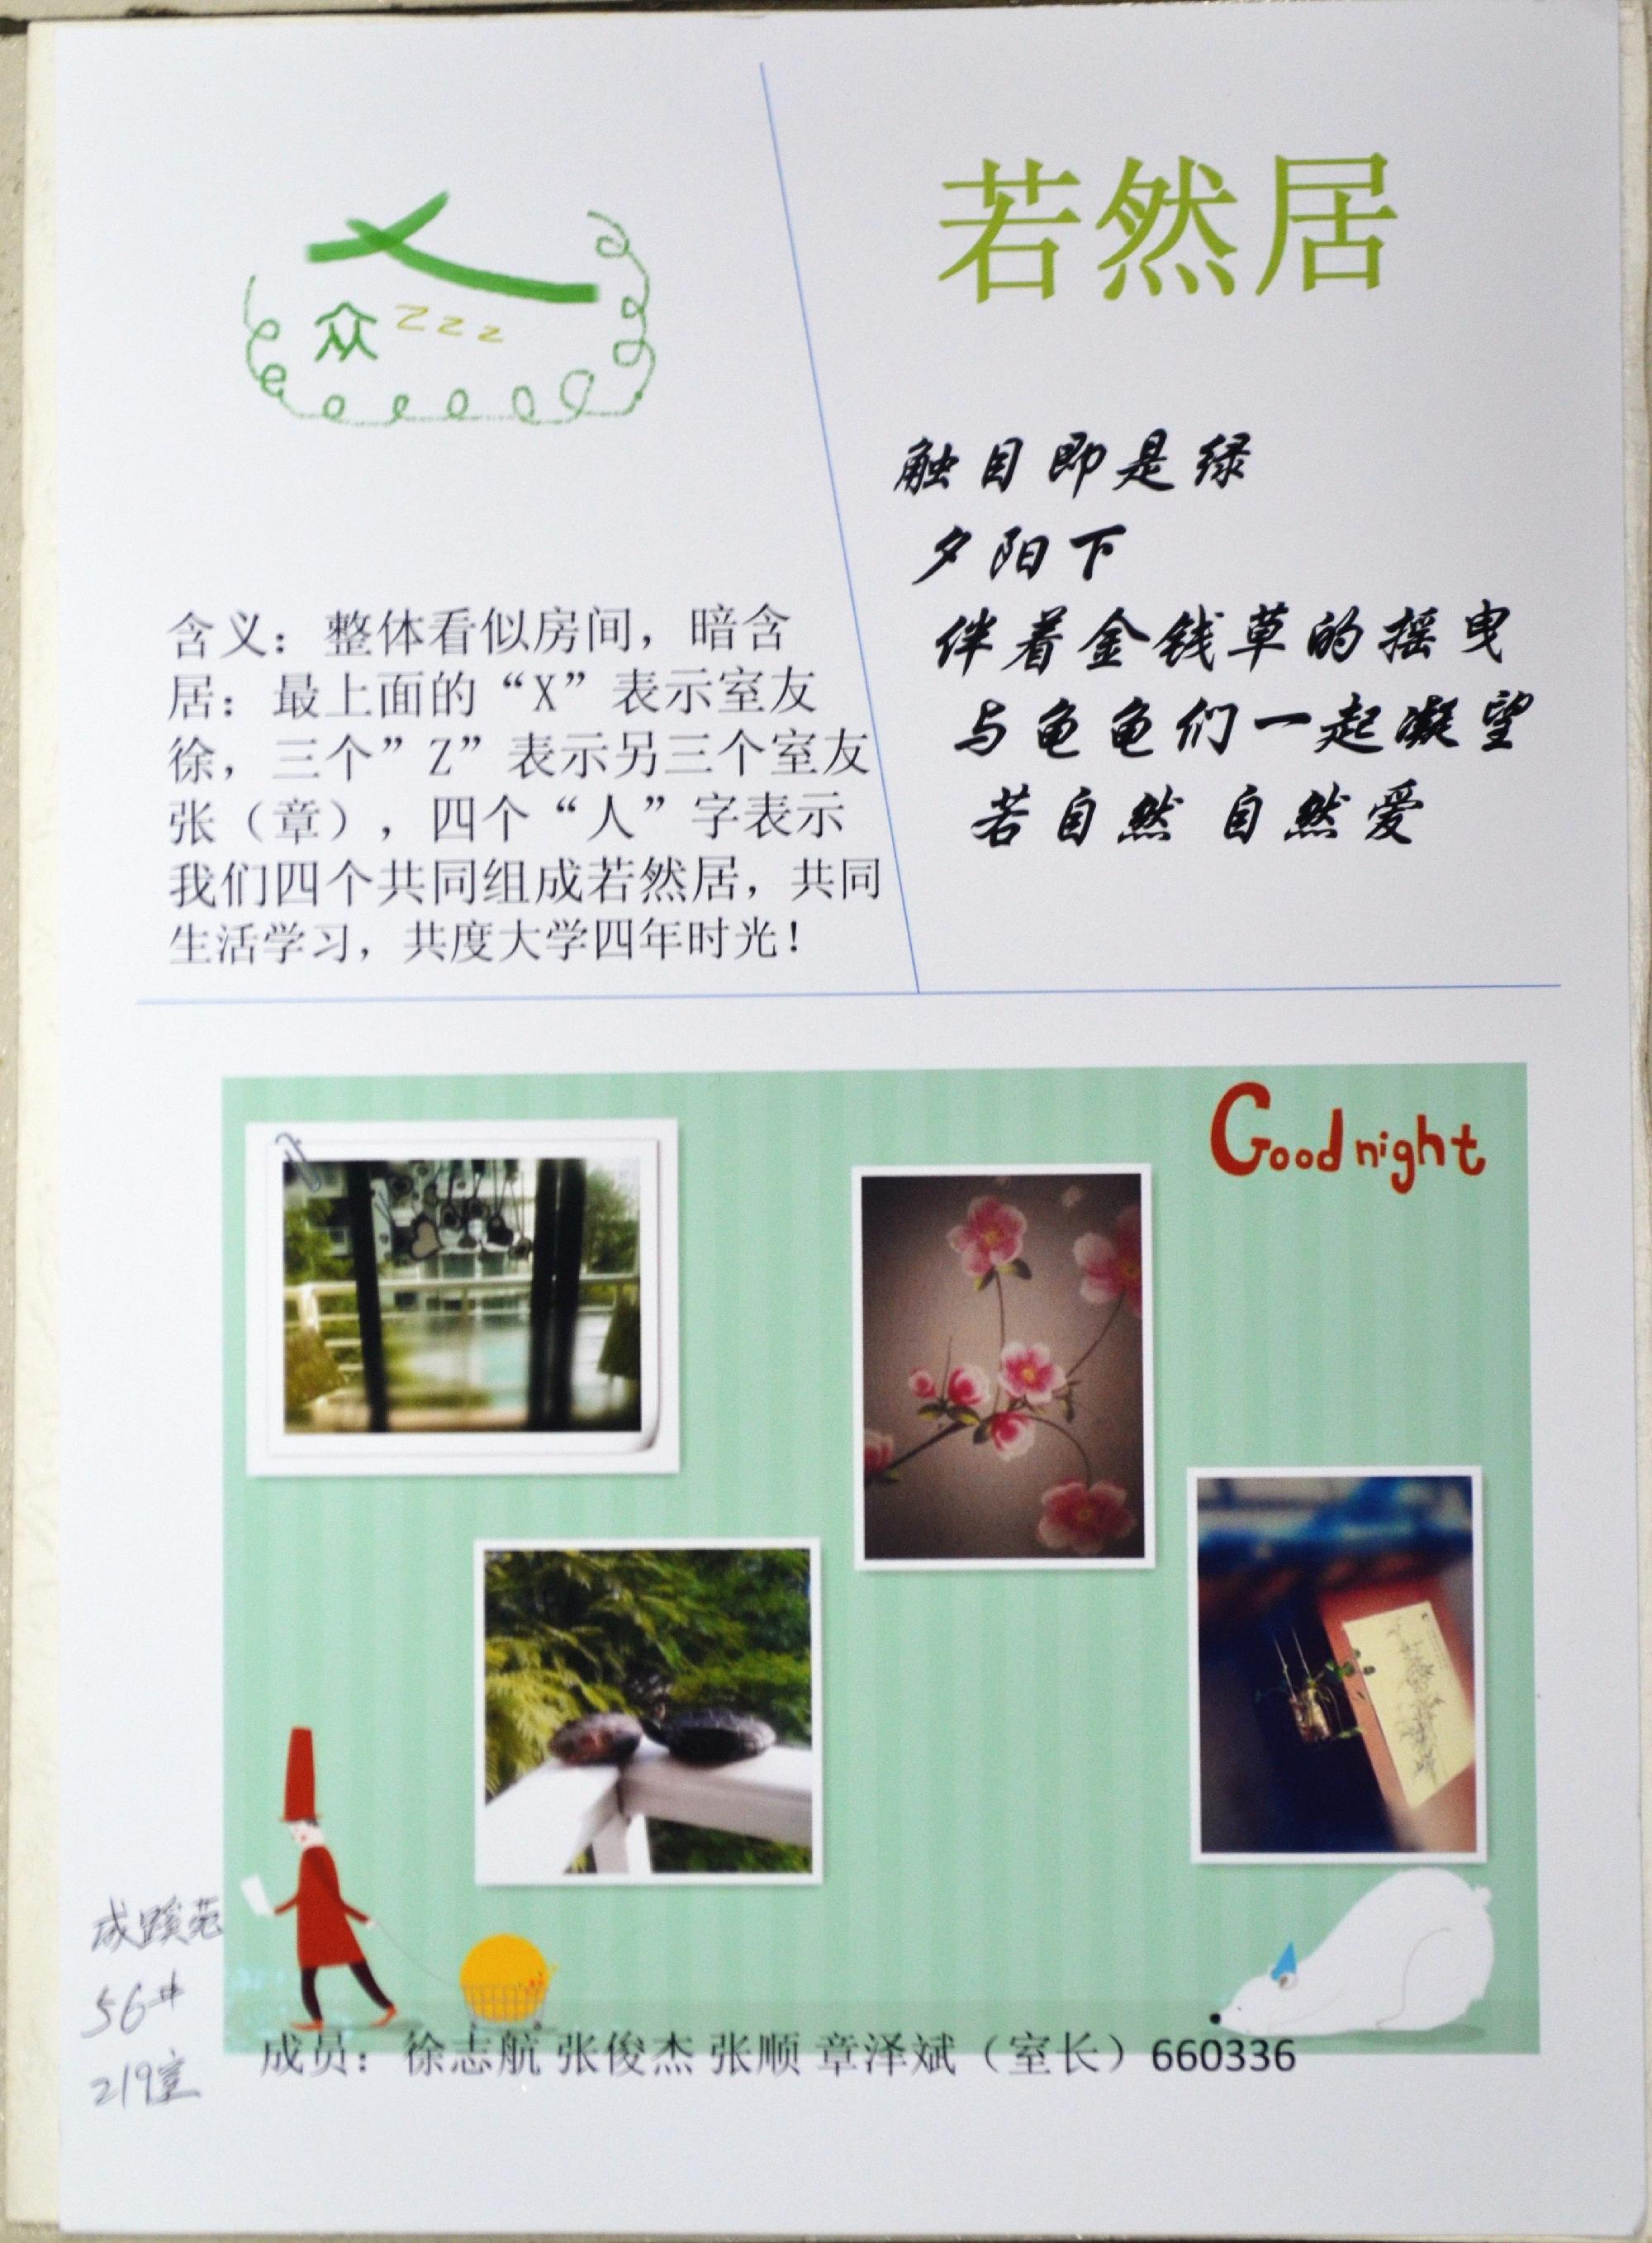 众 z z z
含义：整体看似房间，暗含
居：最上面的“X”表示室友
徐，三个”Z”表示另三个室友
张（章），四个“人”字表示
我们四个共同组成若然居，共同
生活学习，共度大学四年时光！
若然居
触目即是绿
夕阳下
伴着金钱草的摇曳
与龟龟们一起凝望
若自然 自然爱
Good night
成蹊苑
56#
219室
成员：徐志航 张俊杰 张顺 章泽斌（室长）660336